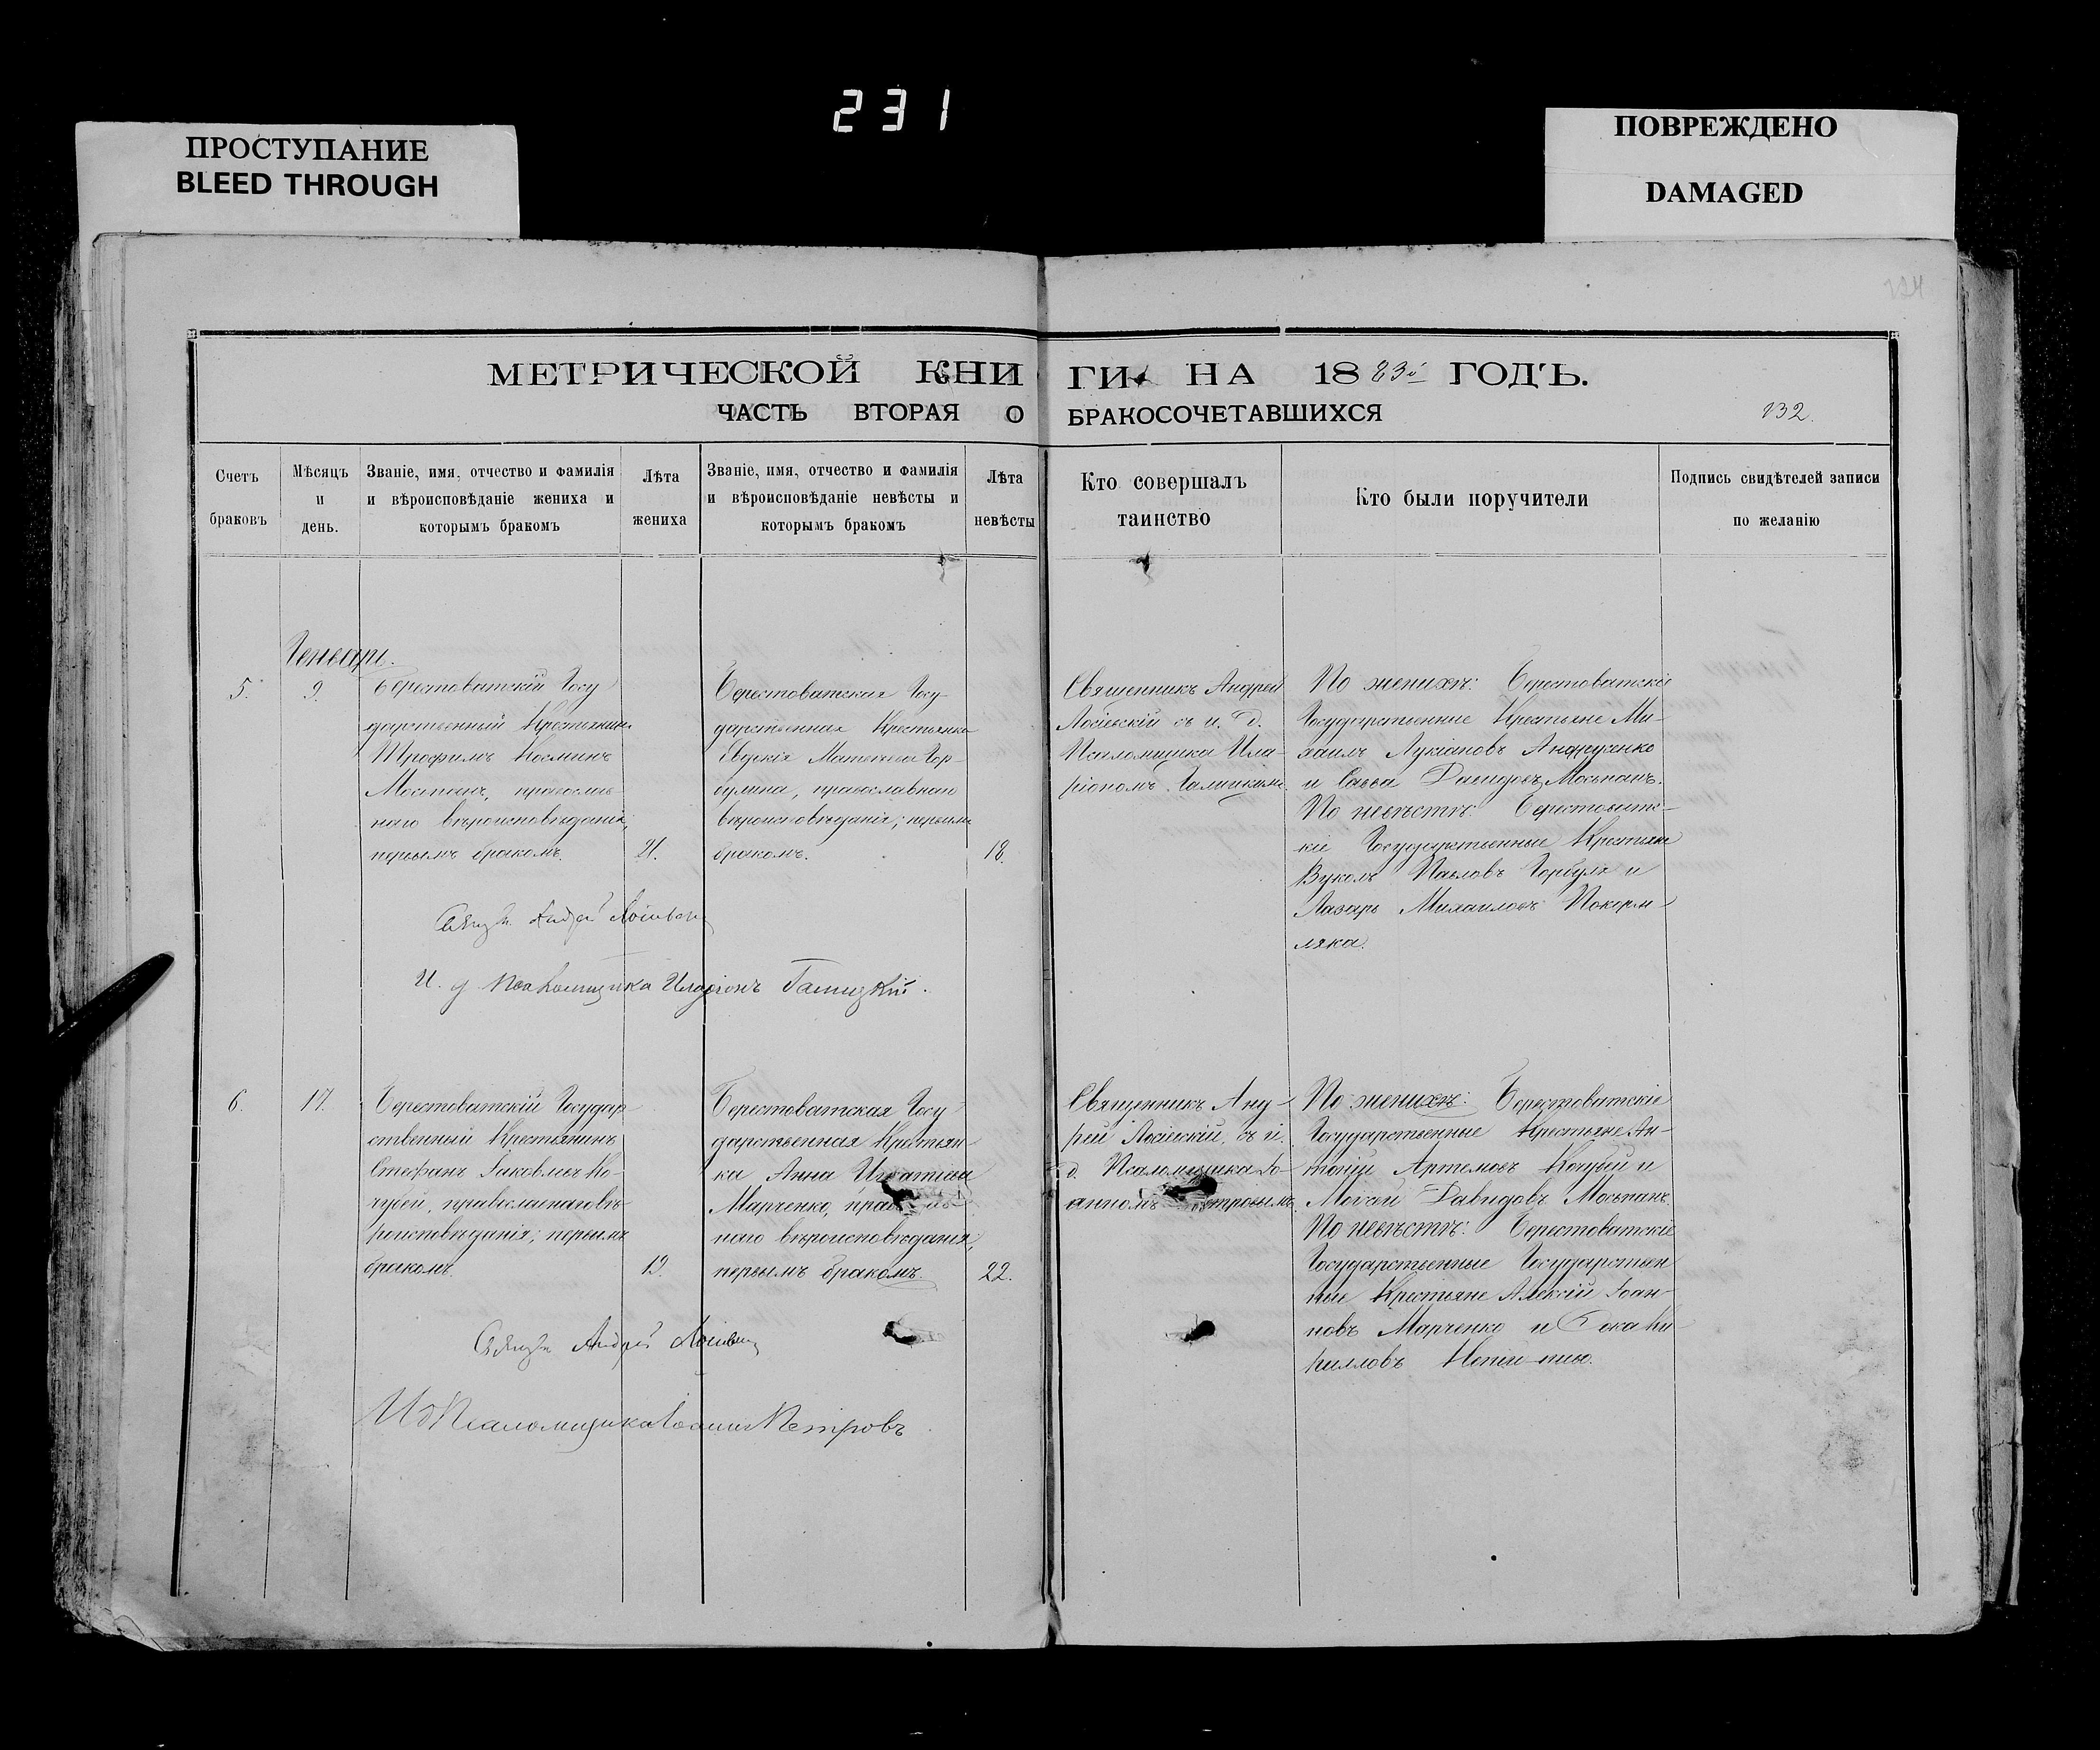 231
ПРОСТУПАНИЕ
BLEED THROUGH
ПОВРЕЖДЕНО
DAMAGED
МЕТРИЧЕСКОЙ КНИ ГИ НА 1883й ГОДЪ.
ЧАСТЬ ВТОРАЯ О БРАКОСОЧЕТАВШИХСЯ
132.
Счетъ
браковъ
Мѣсяцъ
и
день.
Званіе, имя, отчество и фамилія
и вѣроисповѣданіе жениха и
которымъ бракомъ
Лѣта
жениха
Званіе, имя, отчество и фамилія
и вѣроисповѣданіе невѣсты и
которымъ бракомъ
Лѣта
невѣсты
Кто совершалъ
таинство
Кто были поручители
Подпись свидѣтелей записи
по желанію
5.
Генваря.
9.
Берестоватскій Госу
дарственный Крестьянинъ
Трофимъ Косминъ
Моспанъ, православ
наго вѣроисповѣданія,
первымъ бракомъ.
21.
Берестоватская Госу-
дарственная Крестьянка
Евдокія Матвѣева Гор-
булина, православнаго
вѣроисповѣданія; первымъ
бракомъ.
18.
Священникъ Андрей
Лосіевскій съ и. д.
Псаломщика Ила-
ріономъ
По женихѣ: Берестоватскіе
Государственные Крестьяне Ми-
хаилъ Лукіановъ Андрусенко
и Савва Давидовъ Моспанъ.
По невѣстѣ: Берестоватс-
кіе Государственные Крестьяне
Вуколъ Павловъ Горбуля и
Лазарь Михаиловъ Покорм-
ляка.
Священ. Андрей Лосіевскій
И. д. Псаломщика Иларіонъ Галицкій.
6.
17.
Берестоватскій Государ-
ственный Крестьянинъ
Стефанъ Іаковлевъ Ко-
чубей, православнаго вѣ-
роисповѣданія; первымъ
бракомъ.
19.
Берестоватская Госу-
дарственная Крестьян-
ка Анна Игнатіева
Марченко, прав
наго вѣроисповѣданія,
первымъ бракомъ.
22.
Священникъ Анд-
рей Лосіевскій, съ и.
д. Псаломщика Іо-
анномъ Петровымъ.
По женихѣ: Берестоватскіе
Государственные Крестьяне Ан-
тоній Артемовъ Кочубей и
Моѵсей Давидовъ Моспанъ.
По невѣстѣ: Берестоватскіе
Государственные Государствен
ные Крестьяне Алексій Іоан-
новъ Марченко и Ки-
рилловъ
Священ. Андрей Лосіевскій
И д Псаломщика Іоаннъ Петровъ